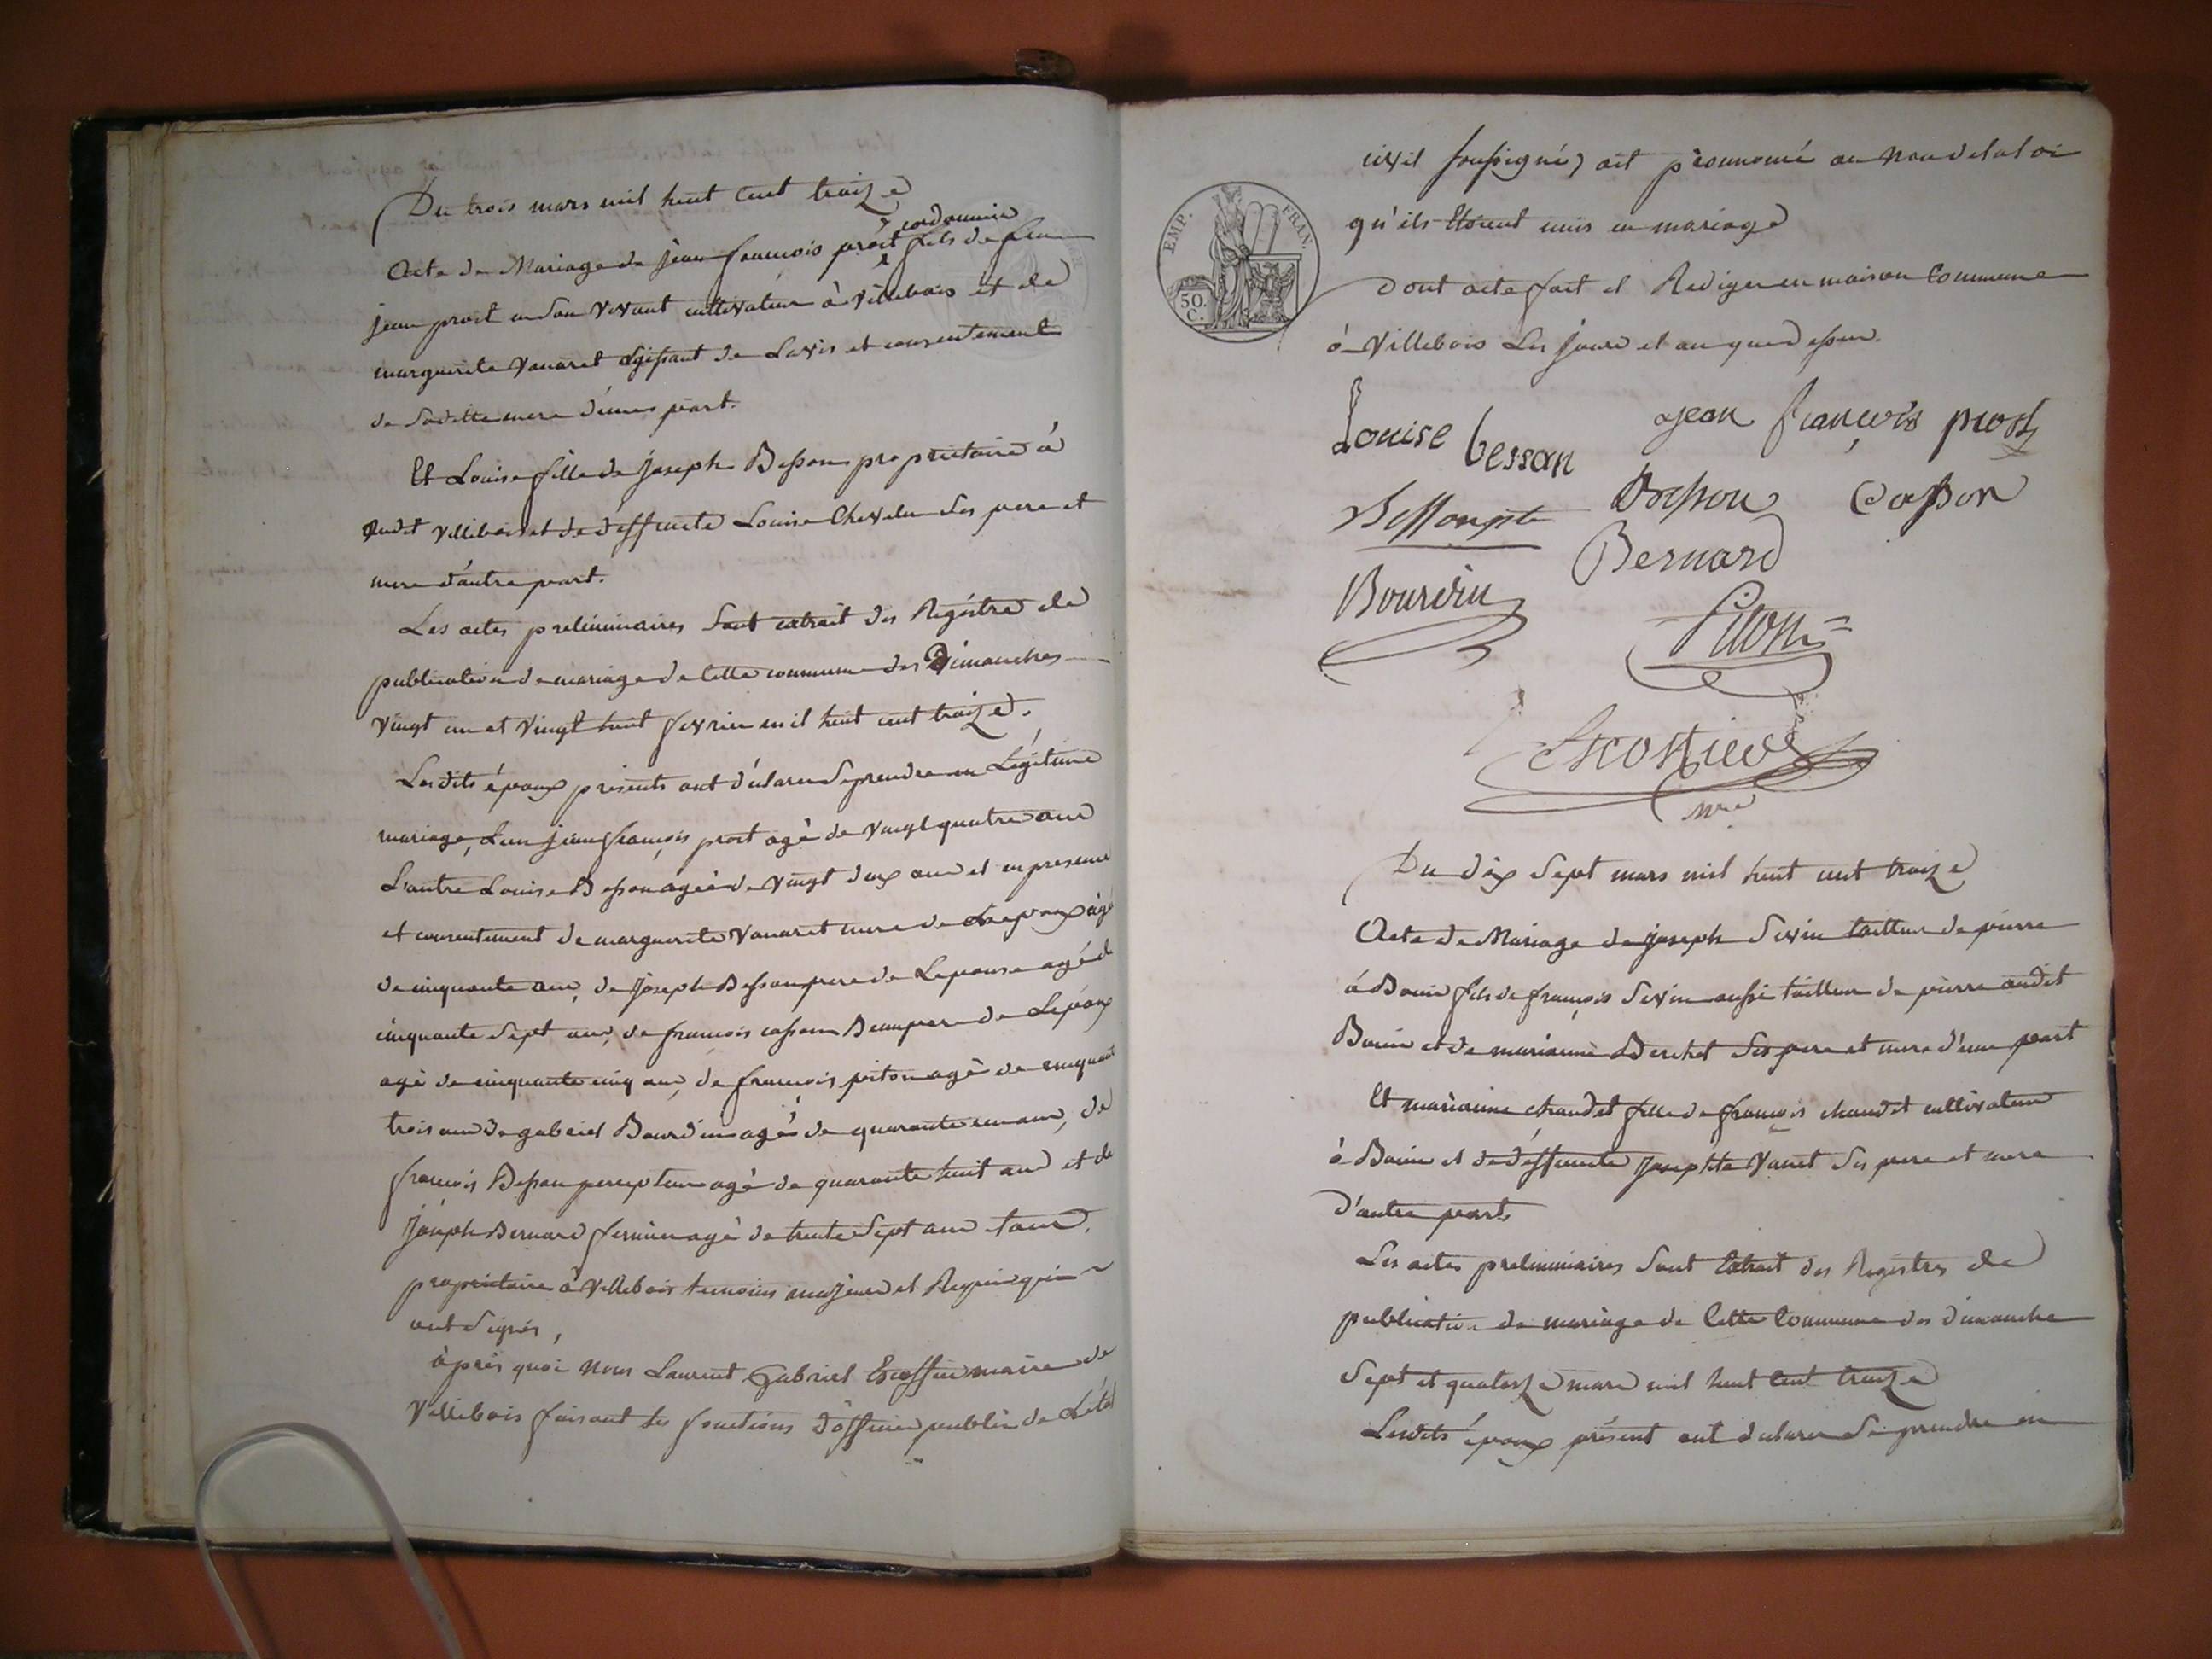 Du trois mars mil huit cent traize
cordonnier
Acte de Mariage de jean francois prost fils de feu
jean prost en son vivant cultivateur à Villebois et de
marguerite Vanaret agissant de Lavis et consentement
de Saditte mere d'une part.
Et Louise fille de joseph Besson propriétaire à
audit Villebois et de déffuncte Louise Chevelu Ses pere et
mere d'autre part.
Les actes préliminaires Sont extrait des Régistre de
publication de mariage de cette commune des Dimanches
vingt un et vingt huit fevrier mil huit cent traize.
Lesdits époux présents ont déclarer Se prendre en Légitime
mariage, L'un jean françois prost agé de vingt quatre ans
L'autre Louise Besson agée de vingt deux ans et en presence
et consentement de marguerite Vanaret mere de Lepoux agé
de cinquante ans, de Joseph Besson pere de Lepouse agé de
cinquante Sept ans, de francois casson Beaupere de Lépoux
agé de cinquante cinq ans, de francois piton agé de cinquante
trois ans de gabriel Bourdin agé de quarante un ans, de
francois Besson percepteur agé de quarante huit ans et de
joseph Bernard fermier agé de trente Sept ans tous
propriétaire à Villebois temoins majeurs et Requis qui
ont Signés,
àprés quoi nous Laurent Gabriel Escoffier maire de
Villebois faisant les fonctions d'officier public de Létat
civil soussigné) ait prononcé au nom de la loi
qu'ils étoient unis en mariage
EMP. FRAN.
50.
C.
Dont acte fait et Rediger en maison Commune
à Villebois Les jours et an que dessus.
Louise besson
jean françois prost
Besson pte
Besson
Casson
Bernard
Bourdin
Piton
Escoffier
mre
Du dix Sept mars mil huit cent traize
Acte de Mariage de joseph Sivin tailleur de pierre
à Bouis fils de françois Sivin aussi tailleur de pierre audit
Bouis et de marianne Berchet Ses pere et mere d'une part
Et marianne chaudet fille de françois chaudet cultivateur
à Bouis et de déffuncte Josephte Vanet Ses pere et mere
d'autre part
Les actes preliminaires Sont Extrait des Registres de
publication de mariage de Cette Commune des dimanche
Sept et quatorze mars mil huit Cent traize
Lesdits époux présent ont déclarer Se prendre en